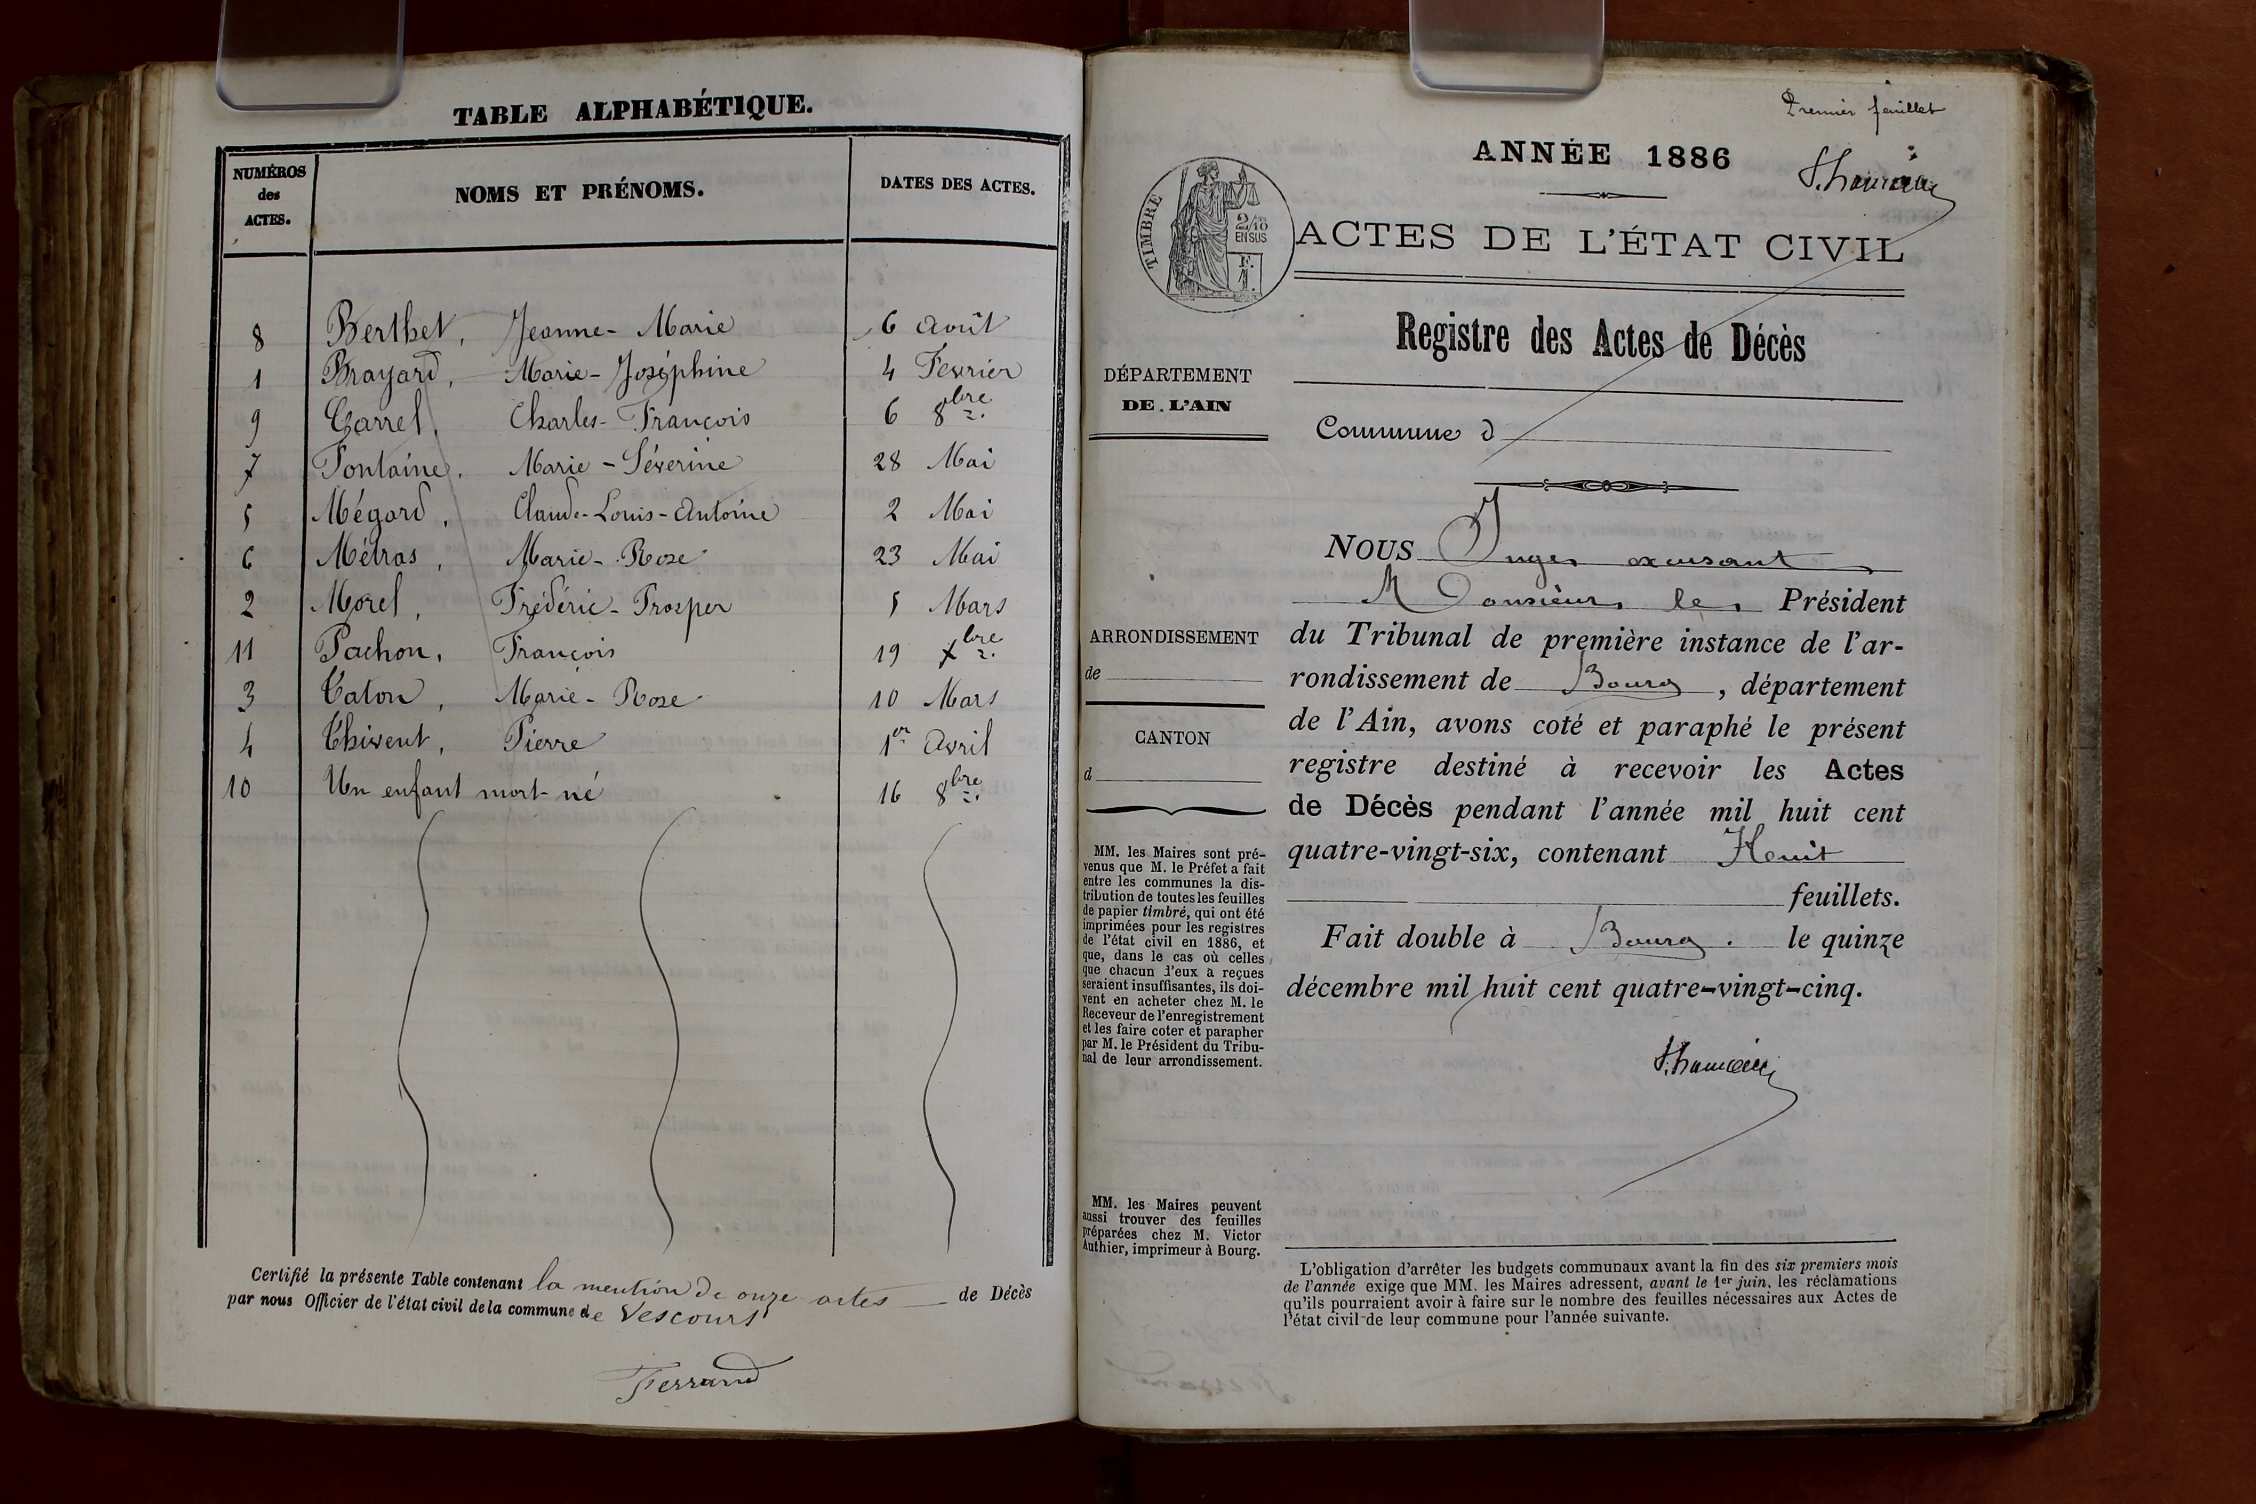 TABLE ALPHABÉTIQUE.
NUMÉROS des ACTES. NOMS ET PRÉNOMS. DATES DES ACTES.
8 Berthet, Jeanne-Marie 6 Août
1 Brayard, Marie-Joséphine 4 Fevrier
9 Carrel, Charles-François 6 8bre
7 Fontaine, Marie-Séverine 28 Mai
5 Mégard, Claude-Louis-Antoine 2 Mai
6 Métras, Marie-Rose 23 Mai
2 Morel, Frédéric-Prosper 5 Mars
11 Pachon, François 19 Xbre
3 Caton, Marie-Rose 10 Mars
4 Chivent, Pierre 1er Avril
10 Un enfant mort-né 16 8bre
Certifié la présente Table contenant la mention de onze actes de Décès
par nous Officier de l'état civil de la commune de Vescours
Ferrand
Premier feuillet
ANNÉE 1886
TIMBRE
2/10
EN SUS
F.
1.
ACTES DE L'ÉTAT CIVIL
Registre des Actes de Décès
DÉPARTEMENT
DE L'AIN
Commune d
ARRONDISSEMENT
de
CANTON
d
NOUS Juge excusant
Monsieur le Président
du Tribunal de première instance de l'ar-
rondissement de Bourg, département
de l'Ain, avons coté et paraphé le présent
registre destiné à recevoir les Actes
de Décès pendant l'année mil huit cent
quatre-vingt-six, contenant Huit
feuillets.
Fait double à Bourg. le quinze
décembre mil huit cent quatre-vingt-cinq.
MM. les Maires sont pré-
venus que M. le Préfet a fait
entre les communes la dis-
tribution de toutes les feuilles
de papier timbré, qui ont été
imprimées pour les registres
de l'état civil en 1886, et
que, dans le cas où celles
que chacun d'eux a reçues
seraient insuffisantes, ils doi-
vent en acheter chez M. le
Receveur de l'enregistrement
et les faire coter et parapher
par M. le Président du Tribu-
nal de leur arrondissement.
MM. les Maires peuvent
aussi trouver des feuilles
préparées chez M. Victor
Authier, imprimeur à Bourg.
L'obligation d'arrêter les budgets communaux avant la fin des six premiers mois
de l'année exige que MM. les Maires adressent, avant le 1er juin, les réclamations
qu'ils pourraient avoir à faire sur le nombre des feuilles nécessaires aux Actes de
l'état civil de leur commune pour l'année suivante.